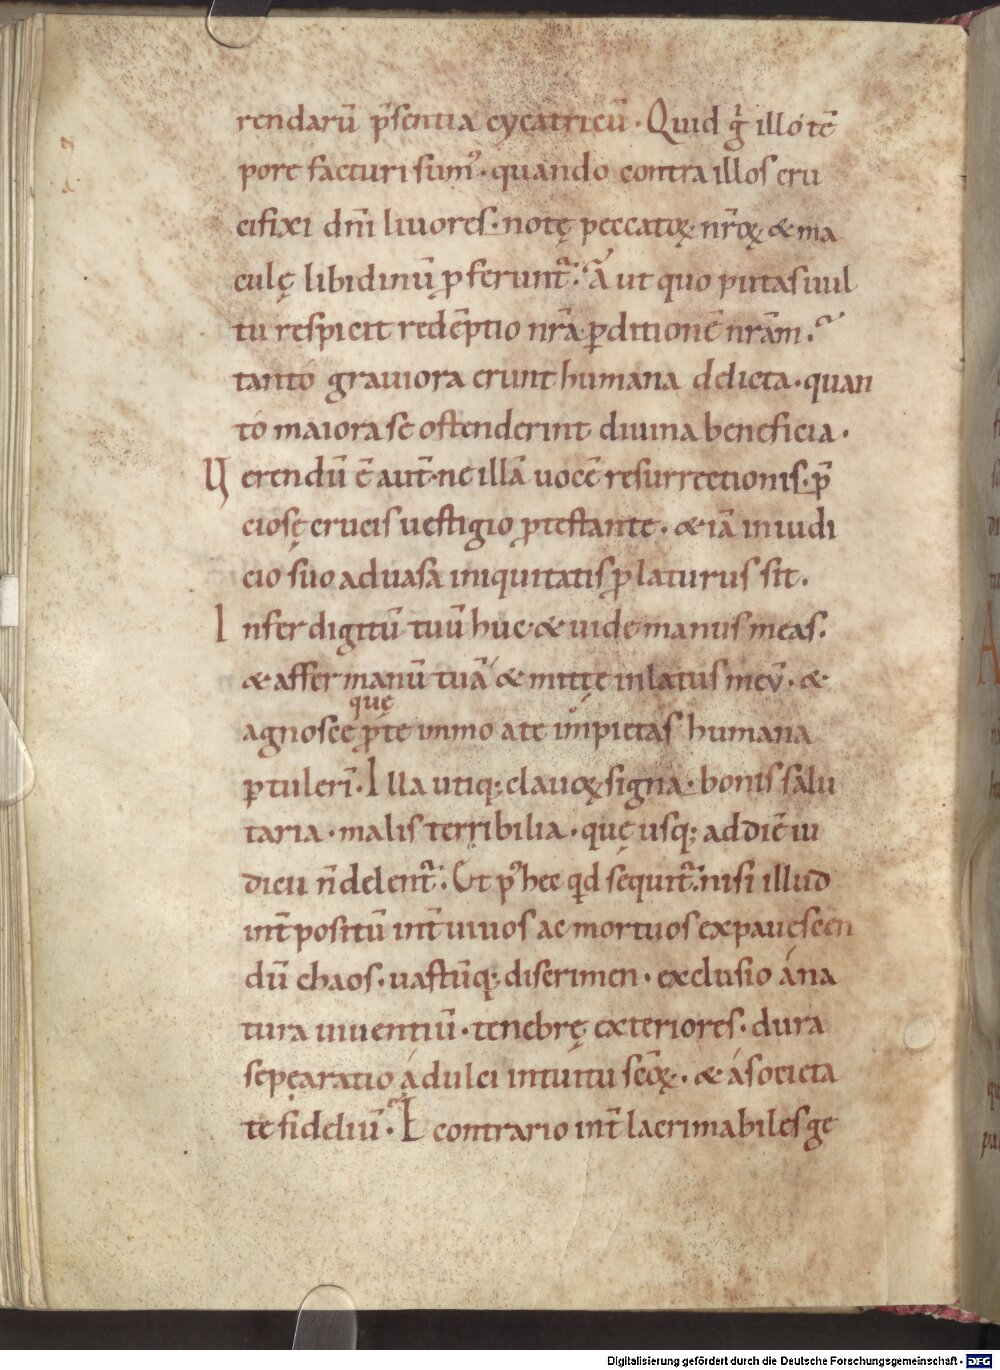 rendarū p̄sentia cycatricū. Quid g̊ illo tē
pore facturi sumꝰ. quando contra illos cru
cifixi dn̄i liuores. notę peccatoꝝ nr̄oꝝ & ma
culę libidinū ꝓferunt᷑. Aut quo putas uul
tu respicit redēptio nr̄a ꝑditionē nr̄am.
tanto grauiora erunt humana delicta. quan
tó maiora se ostenderint diuina beneficia.
Verendū ē aut̄ ne illā uocē resurrectionis. p̄
ciosę crucis uestigio ꝓtestante. & iā in iudi
cio suo aduasa iniquitatis ꝓlaturus sit.
Infer digitū tuū huc & uide manus meas.
& affer manū tuā & mittę in latus meū. &
que
agnosce ꝓ te immo a te impietas humana
ꝑtulerī. Illa utiqꝫ clauoꝝ signa. bonis salu
taria. malis terribilia. quę usqꝫ ad diē iu
dicii n̄ delent᷑. Et pꝰ hec qd sequit᷑. nisi illud
int̄ positū int̄ uiuos ac mortuos expauescen
dū chaos. uastūqꝫ discrimen. exclusio á na
tura uiuentiū. tenebrę exteriores. dura
sepęaratio á dulci intuitu sc̄oꝝ. & á societa
te fideliū. E contrario int̄ lacrimabiles ge
Digitalisierung gefördert durch die Deutsche Forschungsgemeinschaft - DFG